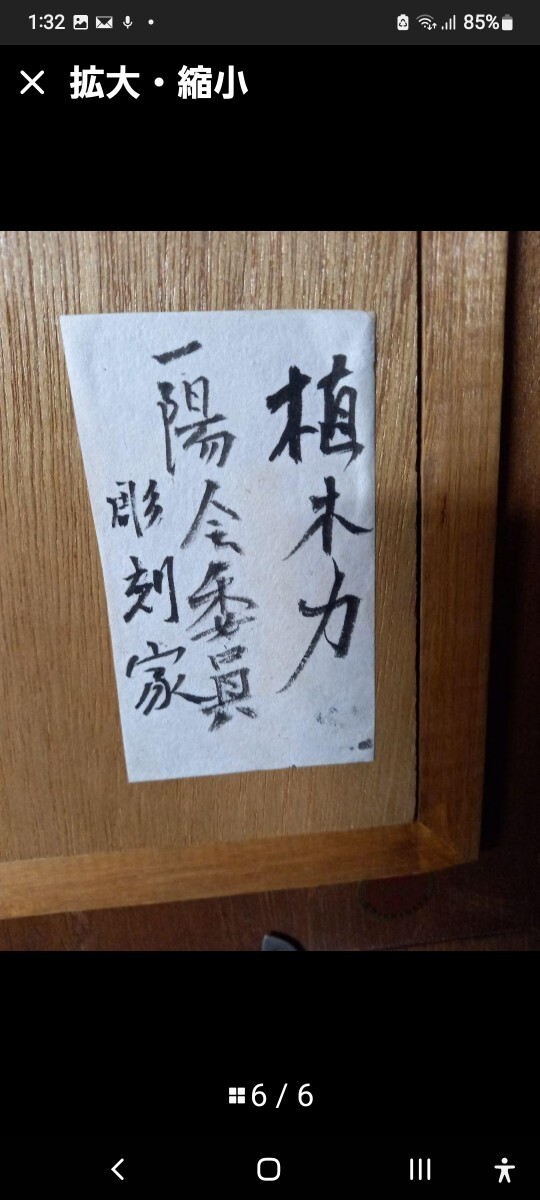 1:32
85%
拡大・縮小
植木力
一陽会委員
彫刻家
6 / 6